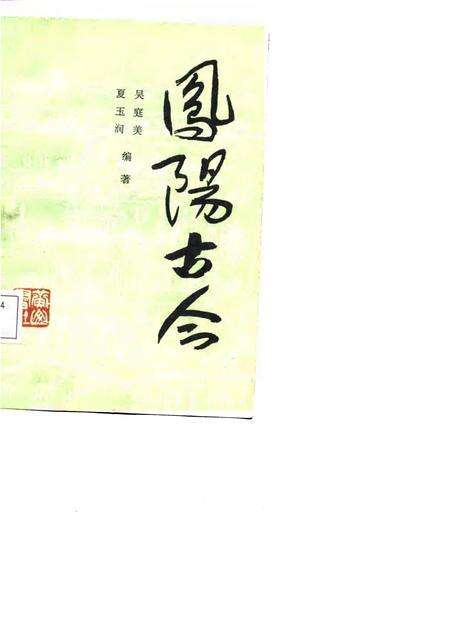 鳳陽古今
吴庭美
夏玉润
编著
4